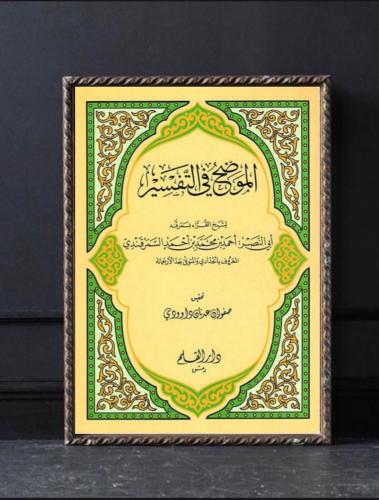 الموضح في التفسير
لشيخ القراء بسمرقند
أبي النصر: أحمد بن محمد بن أحمد السمرقندي
المعروف بالحدادي والمتوفى بعد الأربعمائة
تحقيق
صفوان عدنان داوودي
دار القلم
دمشق